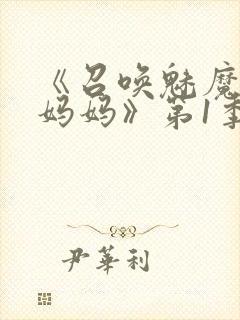 《召唤魅魔
妈妈》第1季
尹华利